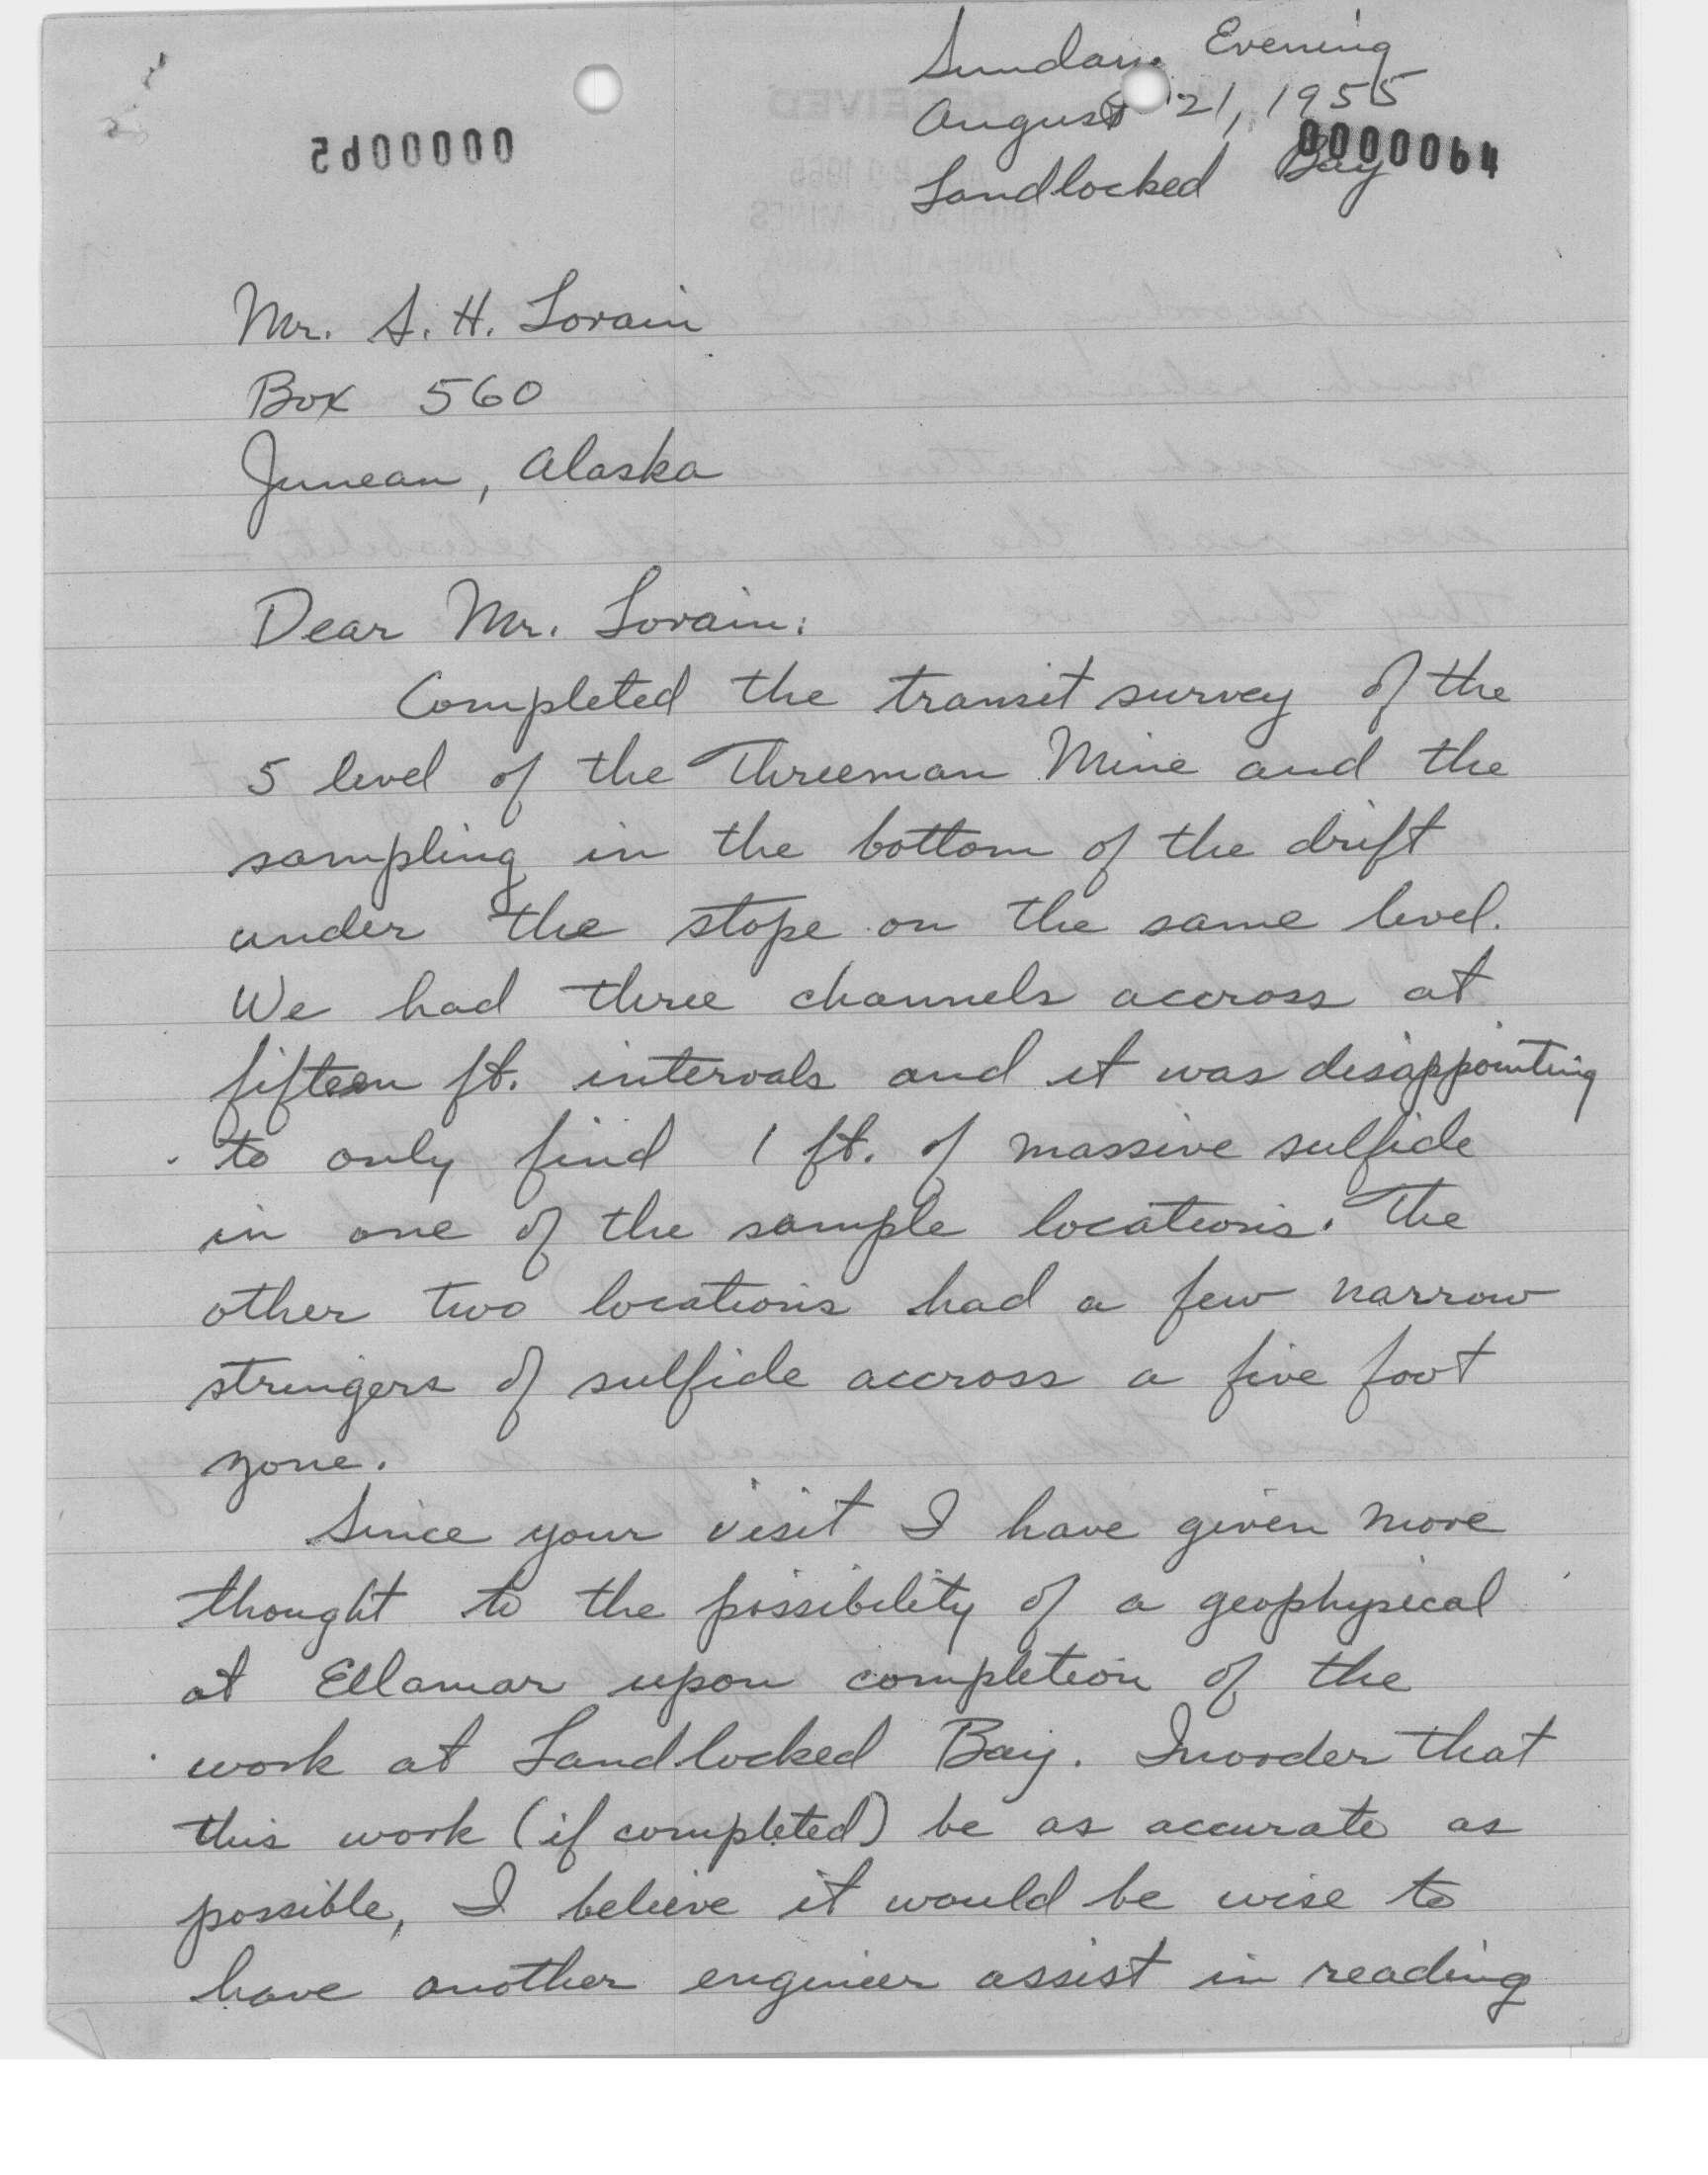 Sunday Evening
August 21, 1955
0000064
Landlocked Bay
Mr. S. H. Lorain
Box 560
Juneau, Alaska
Dear Mr. Lorain:
Completed the transit survey of the
5 level of the Threeman Mine and the
sampling in the bottom of the drift
under the stope on the same level.
We had three channels accross at
fifteen ft. intervals and it was disappointing
to only find 1 ft. of massive sulfide
in one of the sample locations. The
other two locations had a few narrow
stringers of sulfide accross a five foot
zone.
Since your visit I have given more
thought to the possibility of a geophysical
at Ellamar upon completion of the
work at Landlocked Bay. Inorder that
this work (if completed) be as accurate as
possible, I believe it would be wise to
have another engineer assist in reading